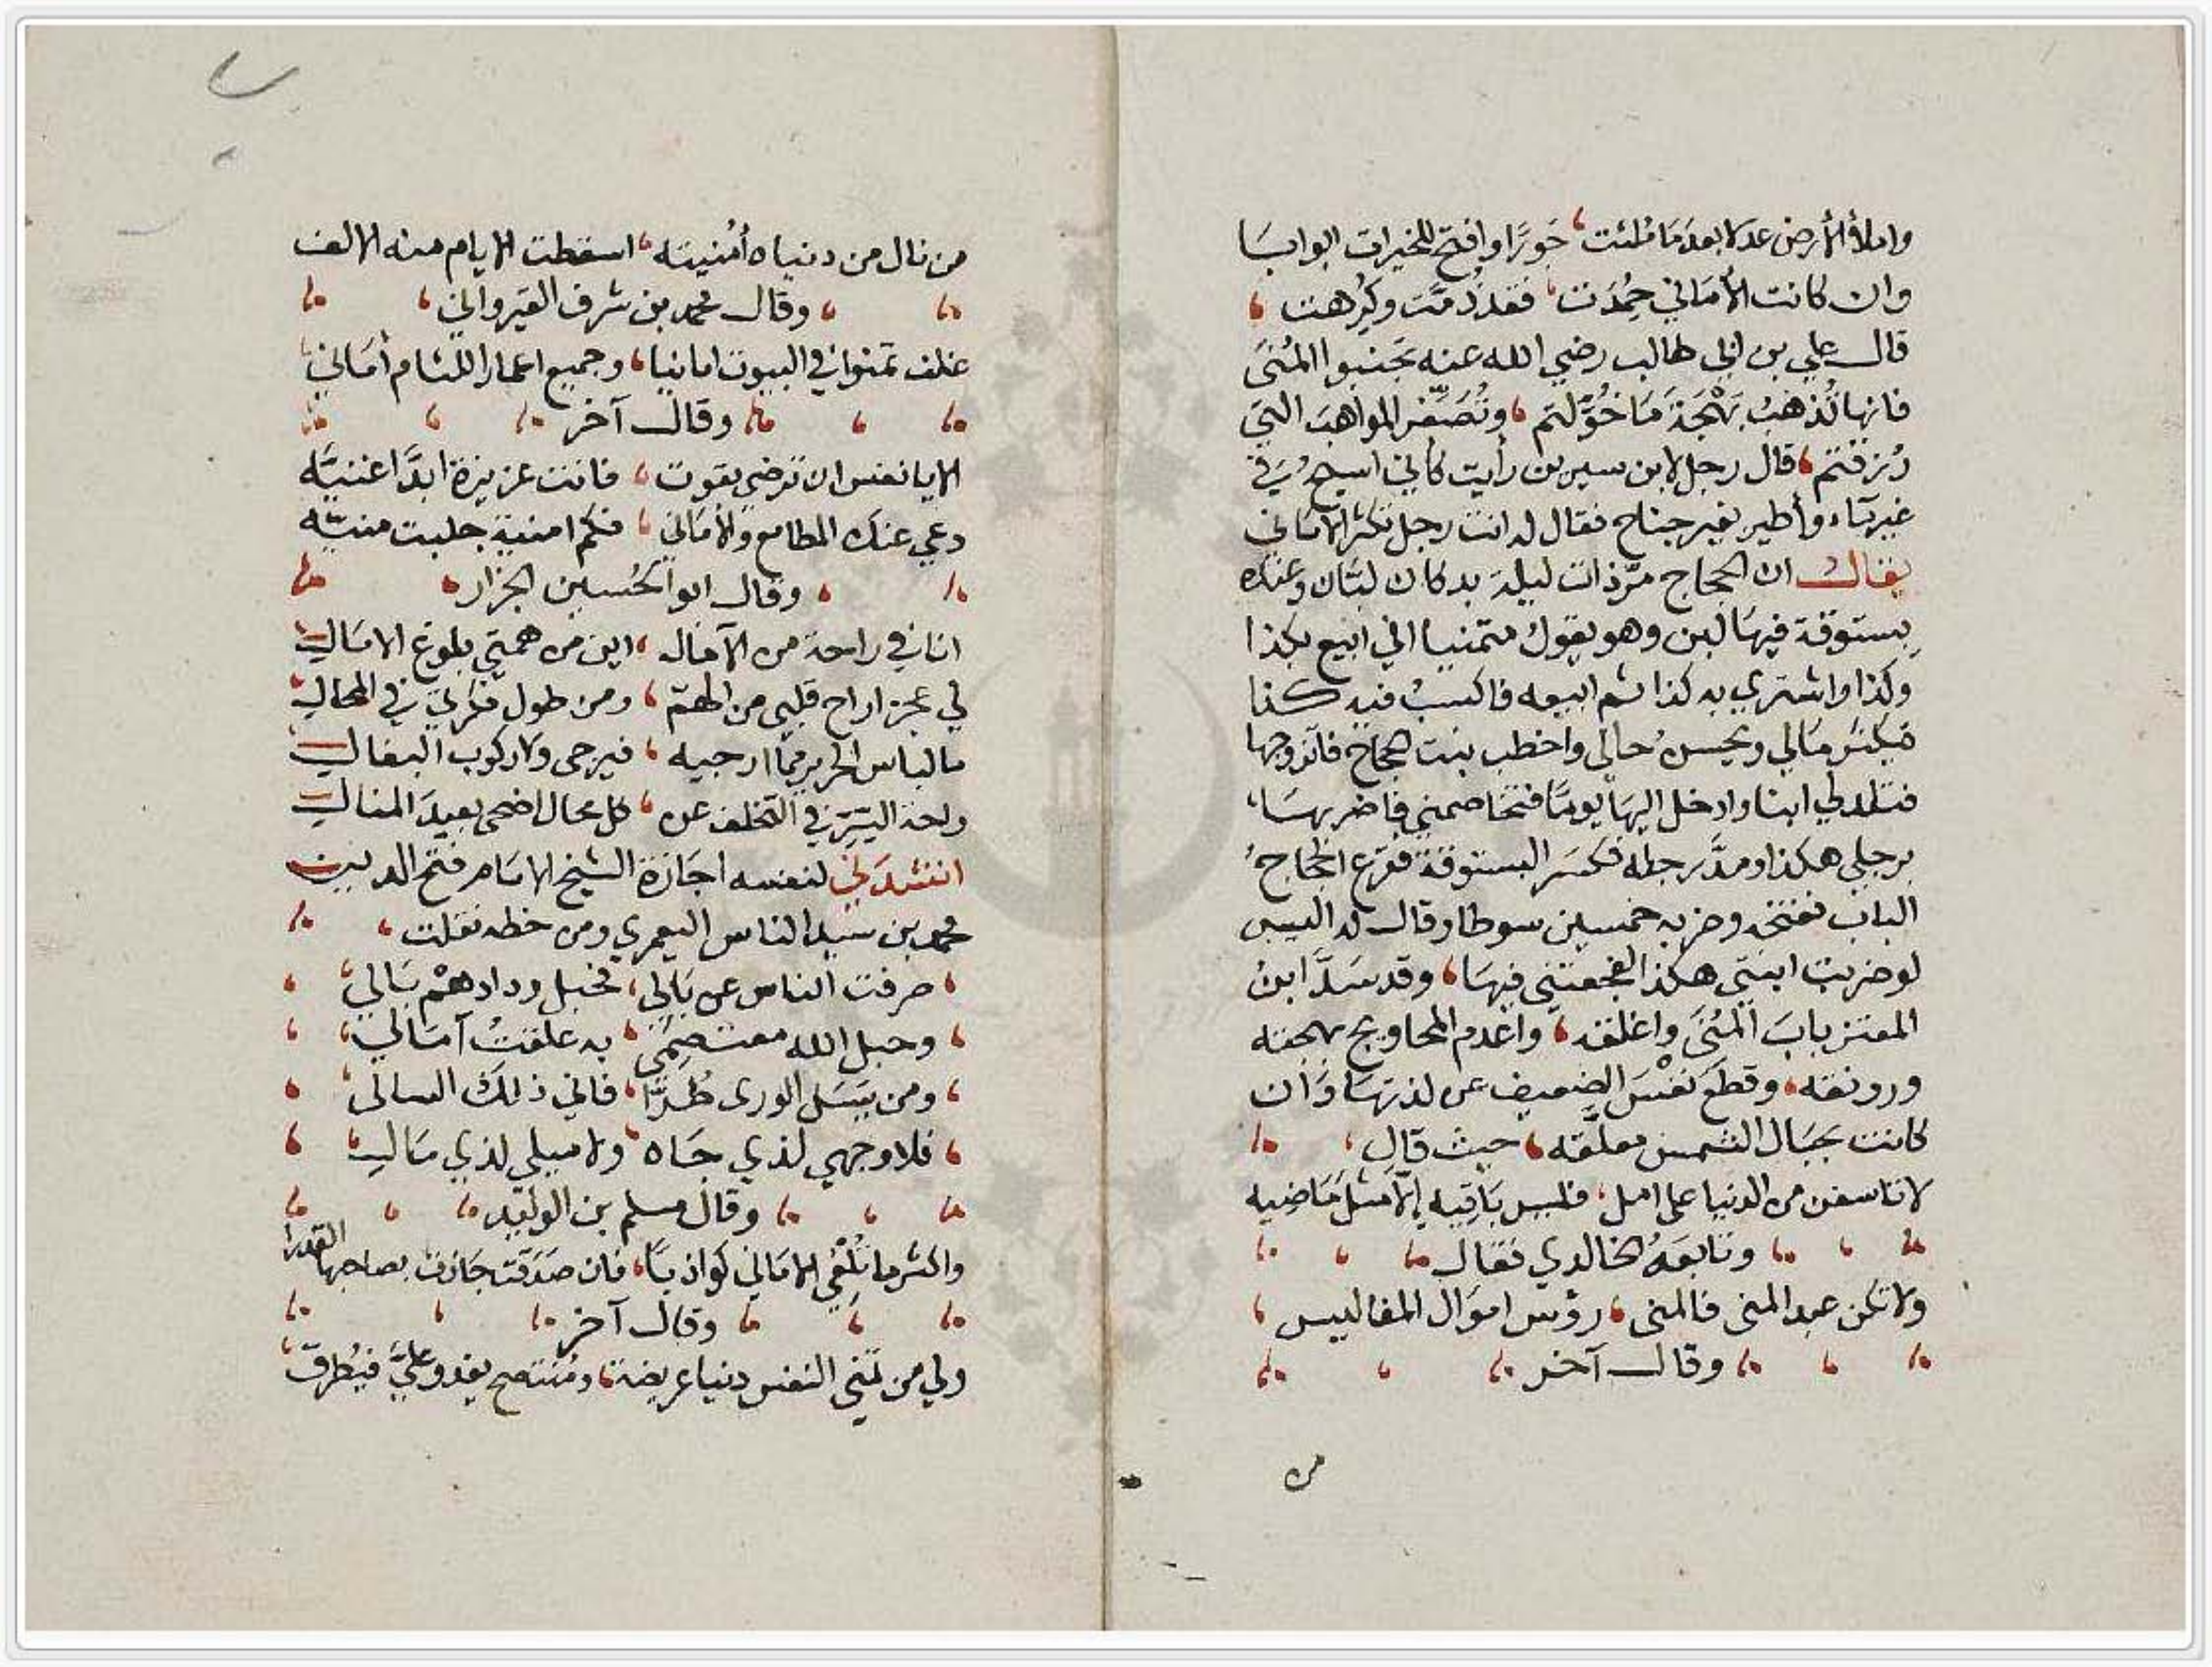 واملأ الأرض عدلا بعد ما ملئت جورًا وافتح للخيرات ابوابا
وان كانت الأماني حمدت فقد ذمت وكرهت
قال علي بن ابي طالب رضي الله عنه تجنبوا المنى
فانها تذهب بهجة ما خولتم وتصغر المواهب التي
رزقتم قال رجل لابن سيرين رأيت كأني اسبح في
غير ماء وأطير بغير جناح فقال له انت رجل تكثر الأماني
يقال ان الحجاج مر ذات ليلة بدكان لبان وعنده
بستوقة فيها لبن وهو يقول متمنيا اني ابيع بكذا
وكذا واشتري به كذا ثم ابيعه فاكسب فيه كذا
فيكثر مالي ويحسن حالي واخطب بنت الحجاج فاتزوجها
فتلد لي ابنا وادخل اليها يوما فتخاصمني فاضربها
برجلي هكذا ومد رجله فكسر البستوقة فقرع الحجاج
الباب ففتحه وضربه خمسين سوطا وقال له اليس
لو ضربت ابنتي هكذا لفجعتني فيها وقد سد ابن
المعتز باب المنى واغلقه واعدم المحاويج بهجته
ورونقه وقطع نفس الضعيف عن لذتها وان
كانت بحبال الشمس معلقه حيث قال
لا تاسفن من الدنيا على امل فليس باقيه إلا مثل ماضيه
وتابعه الخالدي فقال
ولا تكن عبد المنى فالمنى رؤس اموال المفاليس
وقال آخر
من
من نال من دنياه أمنيته اسقطت الايام منه الالف
وقال محمد بن شرف القيرواني
غلف تمنوا في البيوت امانيا وجميع اعمار اللئام أماني
وقال آخر
الا يا نفس ان ترضي بقوت فانت عزيزة ابدًا غنيه
دعي عنك المطامع والأماني فكم امنية جلبت منيه
وقال ابو الحسين الجزار
انا في راحة من الآمال اين من همتي بلوغ الامالي
لي عجز اراح قلبي من الهم ومن طول فكرتي في المحال
ما لباس الحرير مما ارجيه فيرجى ولا ركوب البغال
راحة السر في التخلف عن كل محال اضحى بعيد المنال
انشدني لنفسه اجازة الشيخ الامام فتح الدين
محمد بن سيد الناس اليعمري ومن خطه نقلت
صرفت الناس عن بالي فحبل ودادهم بالي
وحبل الله معتصمي به علقت آمالي
ومن يسل الورى طرًا فاني ذلك السالي
فلا وجهي لذي جاه ولا ميلي لذي مال
وقال مسلم بن الوليد
واكثر ما تلقي الاماني كواذبًا فان صدقت جازت بصاحبها القدرا
وقال آخر
ولي من تمني النفس دنيا عريضة ومنتصح يغدو علي فيطرق